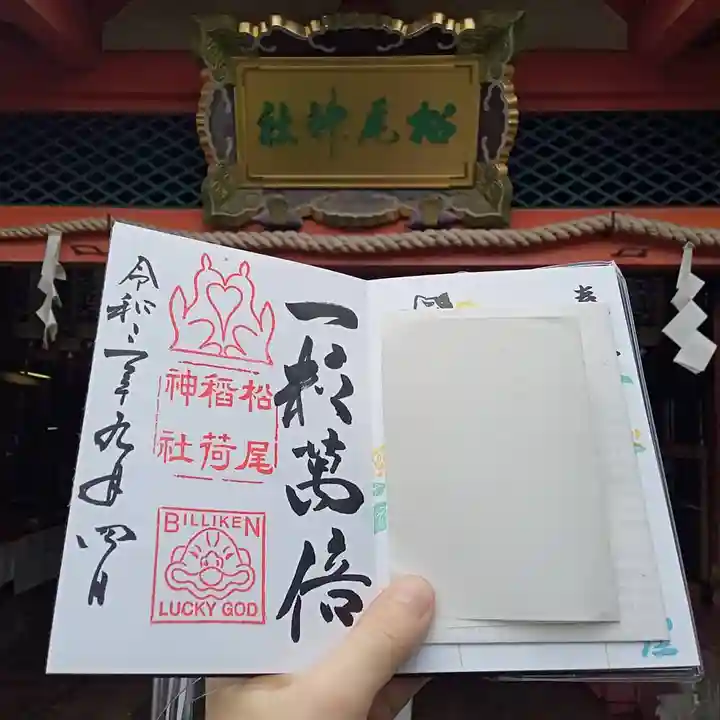 松尾神社
一粒萬倍
松尾
稲荷
神社
BILLIKEN
LUCKY GOD
令和二年九月四日